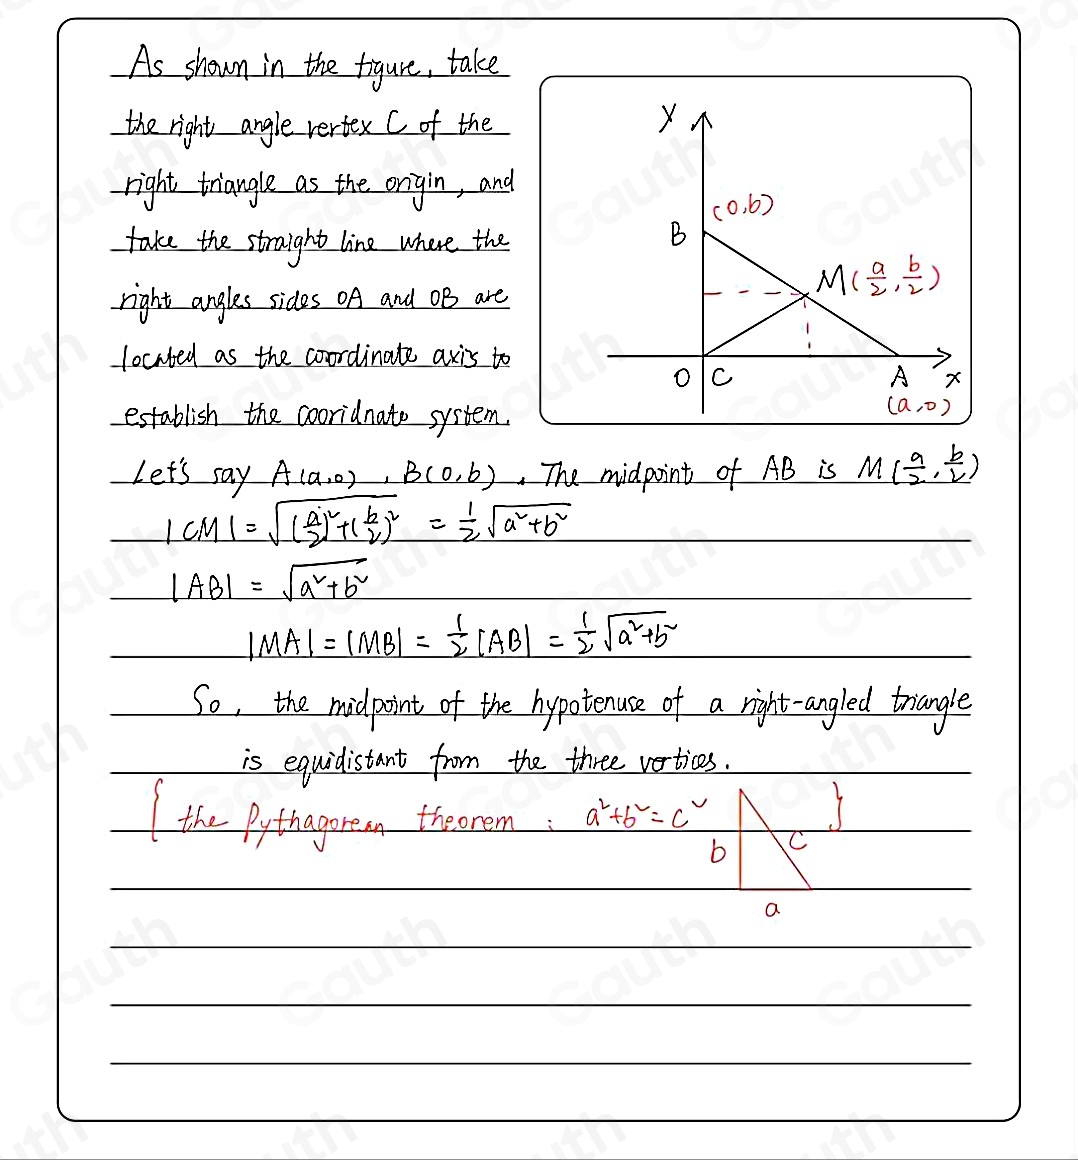 As shown in the figure, take
the right angle vertex C of the
right triangle as the origin, and
take the straight line where the
right angles sides OA and OB are
located as the coordinate axis to
establish the cooridnate system.
y
(0,b)
B
M(a/2, b/2)
O C A x
(a,0)
Let's say A(a,0), B(0,b). The midpoint of AB is M(a/2, b/2)
|CM| = √((a/2)²+(b/2)²) = 1/2 √(a²+b²)
|AB| = √(a²+b²)
|MA| = |MB| = 1/2 |AB| = 1/2 √(a²+b²)
So, the midpoint of the hypotenuse of a right-angled triangle
is equidistant from the three vertices.
{ the Pythagorean theorem : a²+b²=c² }
b c
a
Gauth